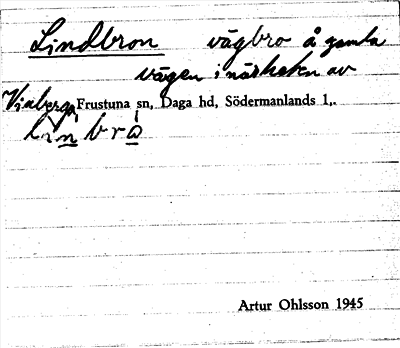 Lindbron vägbro å gamla
vägen i närheten av
Vinberga, Frustuna sn, Daga hd, Södermanlands l,.
linbrå
Artur Ohlsson 1945